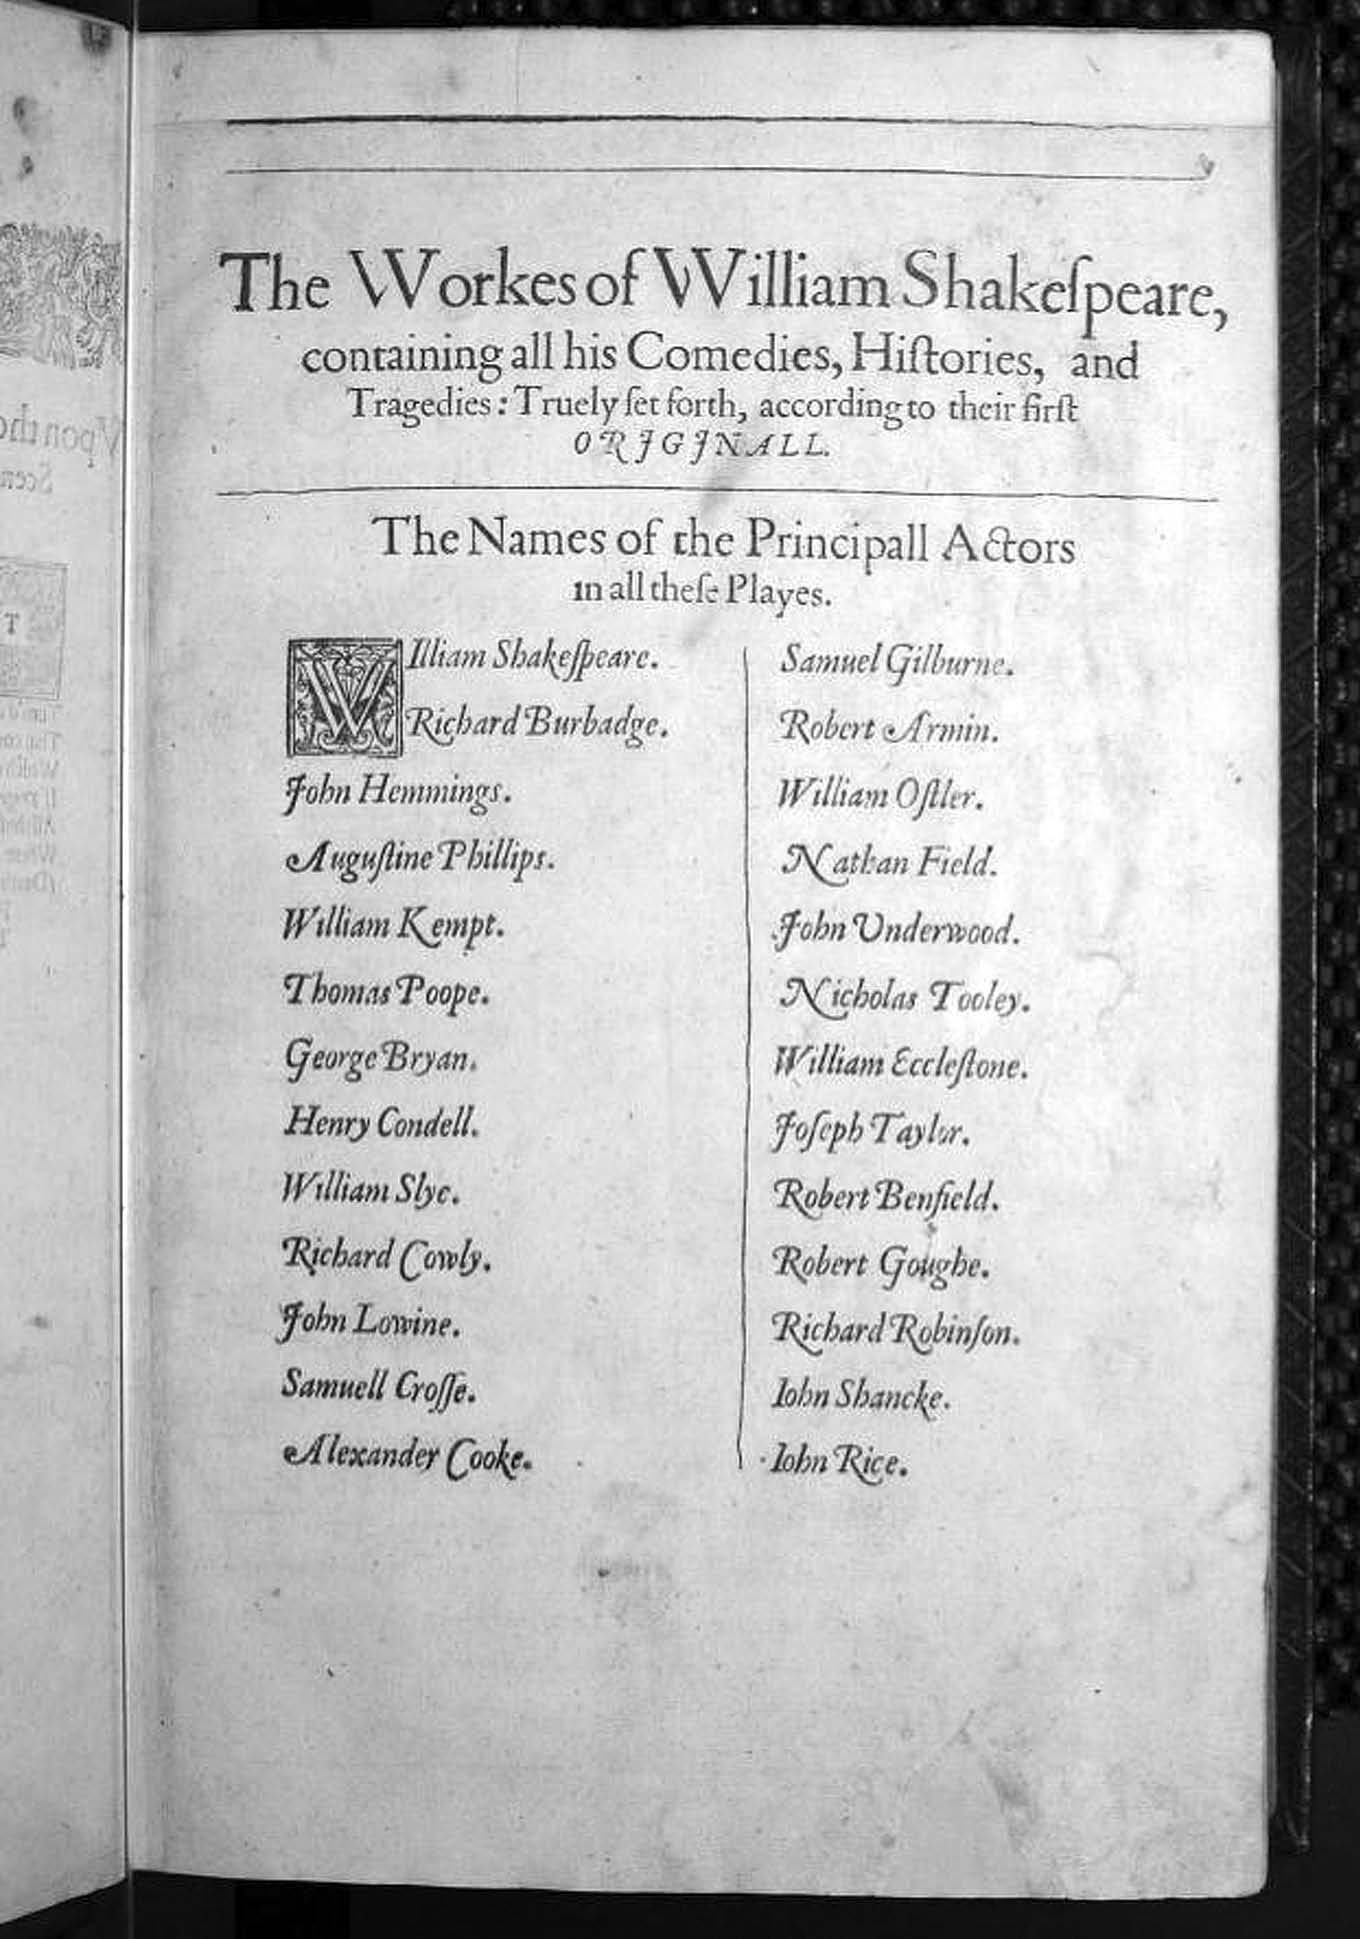 The Workes of William Shakeſpeare,
containing all his Comedies, Hiſtories, and
Tragedies: Truely ſet forth, according to their firſt
ORJGJNALL.
The Names of the Principall Actors
in all theſe Playes.
WIlliam Shakeſpeare.
Richard Burbadge.
John Hemmings.
Auguſtine Phillips.
William Kempt.
Thomas Poope.
George Bryan.
Henry Condell.
William Slye.
Richard Cowly.
John Lowine.
Samuell Croſſe.
Alexander Cooke.
Samuel Gilburne.
Robert Armin.
William Oſtler.
Nathan Field.
John Underwood.
Nicholas Tooley.
William Eccleſtone.
Joſeph Taylor.
Robert Benfield.
Robert Goughe.
Richard Robinſon.
Iohn Shancke.
Iohn Rice.